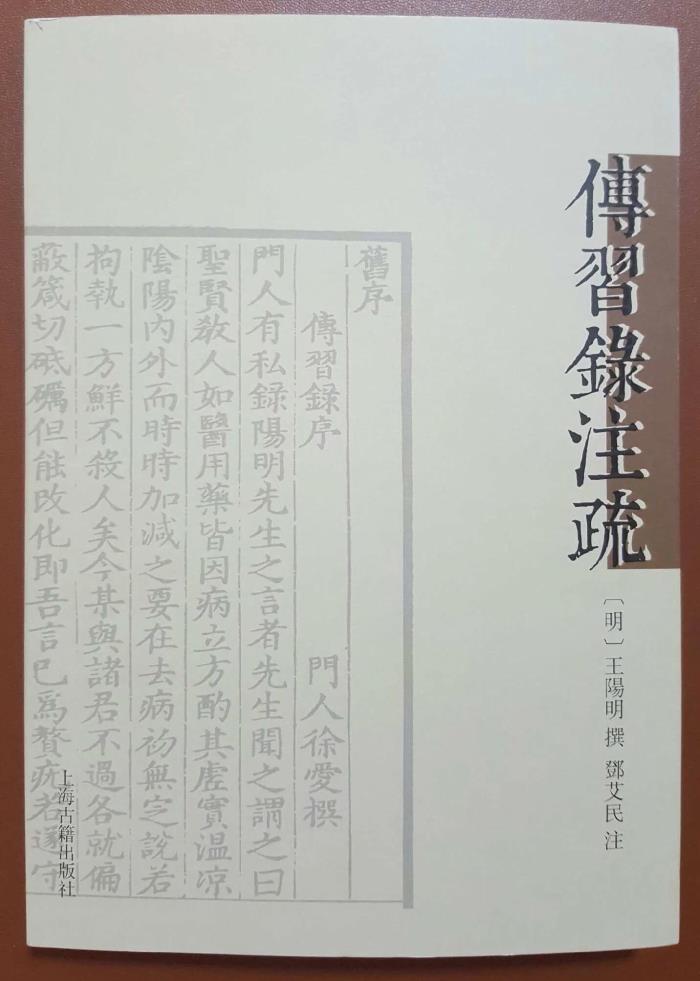 傳習錄注疏
〔明〕王陽明 撰 鄧艾民 注
舊序
傳習錄序
門人徐愛撰
門人有私録陽明先生之言者先生聞之謂之曰
聖賢教人如醫用藥皆因病立方酌其虛實温凉
陰陽内外而時時加減之要在去病初無定說若
拘執一方鮮不殺人矣今某與諸君不過各就偏
蔽箴切砥礪但能改化即吾言已爲贅疣若遂守
上海古籍出版社